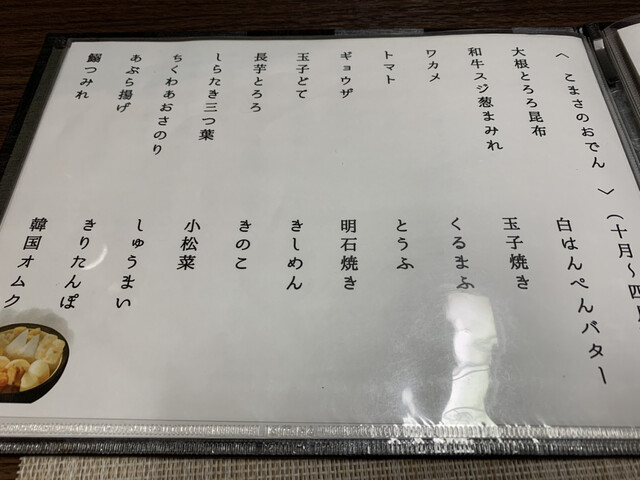 〈 こまさのおでん 〉(十月〜四月
大根とろろ昆布
和牛スジ葱まみれ
ワカメ
トマト
ギョウザ
玉子どて
長芋とろろ
しらたき三つ葉
ちくわあおさのり
あぶら揚げ
鰯つみれ
白はんぺんバター
玉子焼き
くるまふ
とうふ
明石焼き
きしめん
きのこ
小松菜
しゅうまい
きりたんぽ
韓国オムク